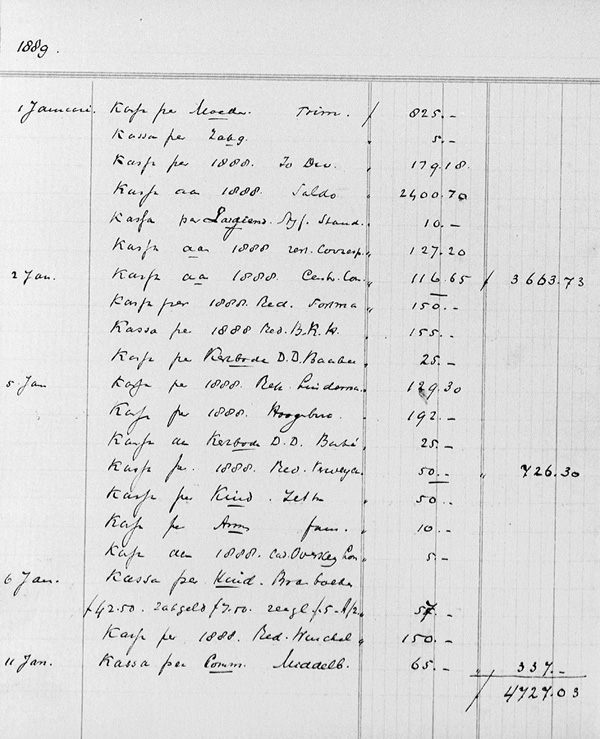 1889.
1 Januari. Kassa per Moeder Trim. ƒ 825.-
Kassa per Zaag. " 5.-
Kassa per 1888. Io Dec. " 179.18
Kassa aan 1888. Saldo " 2400.70
Kassa per Stand. " 10.-
Kassa aan 1888 rest. Corresp. " 127.20
2 Jan. Kassa aan 1888. Centr. Com. " 116.65 ƒ 3663.73
Kassa per 1888. Red. " 150.-
Kassa per 1888 Red. B. K. W. " 155.-
Kassa per Kerkbode D. D. " 25.-
5 Jan Kassa per 1888. Red. Lindema. " 129.30
Kassa per 1888. " 192.-
Kassa aan Kerkbode D. D. " 25.-
Kassa per 1888. Red. " 50.- " 726.30
Kassa per Kind. " 50.-
Kassa per Arm fam. " 10.-
Kassa aan 1888. " 5.-
6 Jan. Kassa per Kind.
ƒ42.50. zaageld ƒ7.50. " 57.-
Kassa per 1888. Red. Winckel " 150.-
11 Jan. Kassa per Comm. Middelb. " 65.- " 337.-
ƒ 4727.03